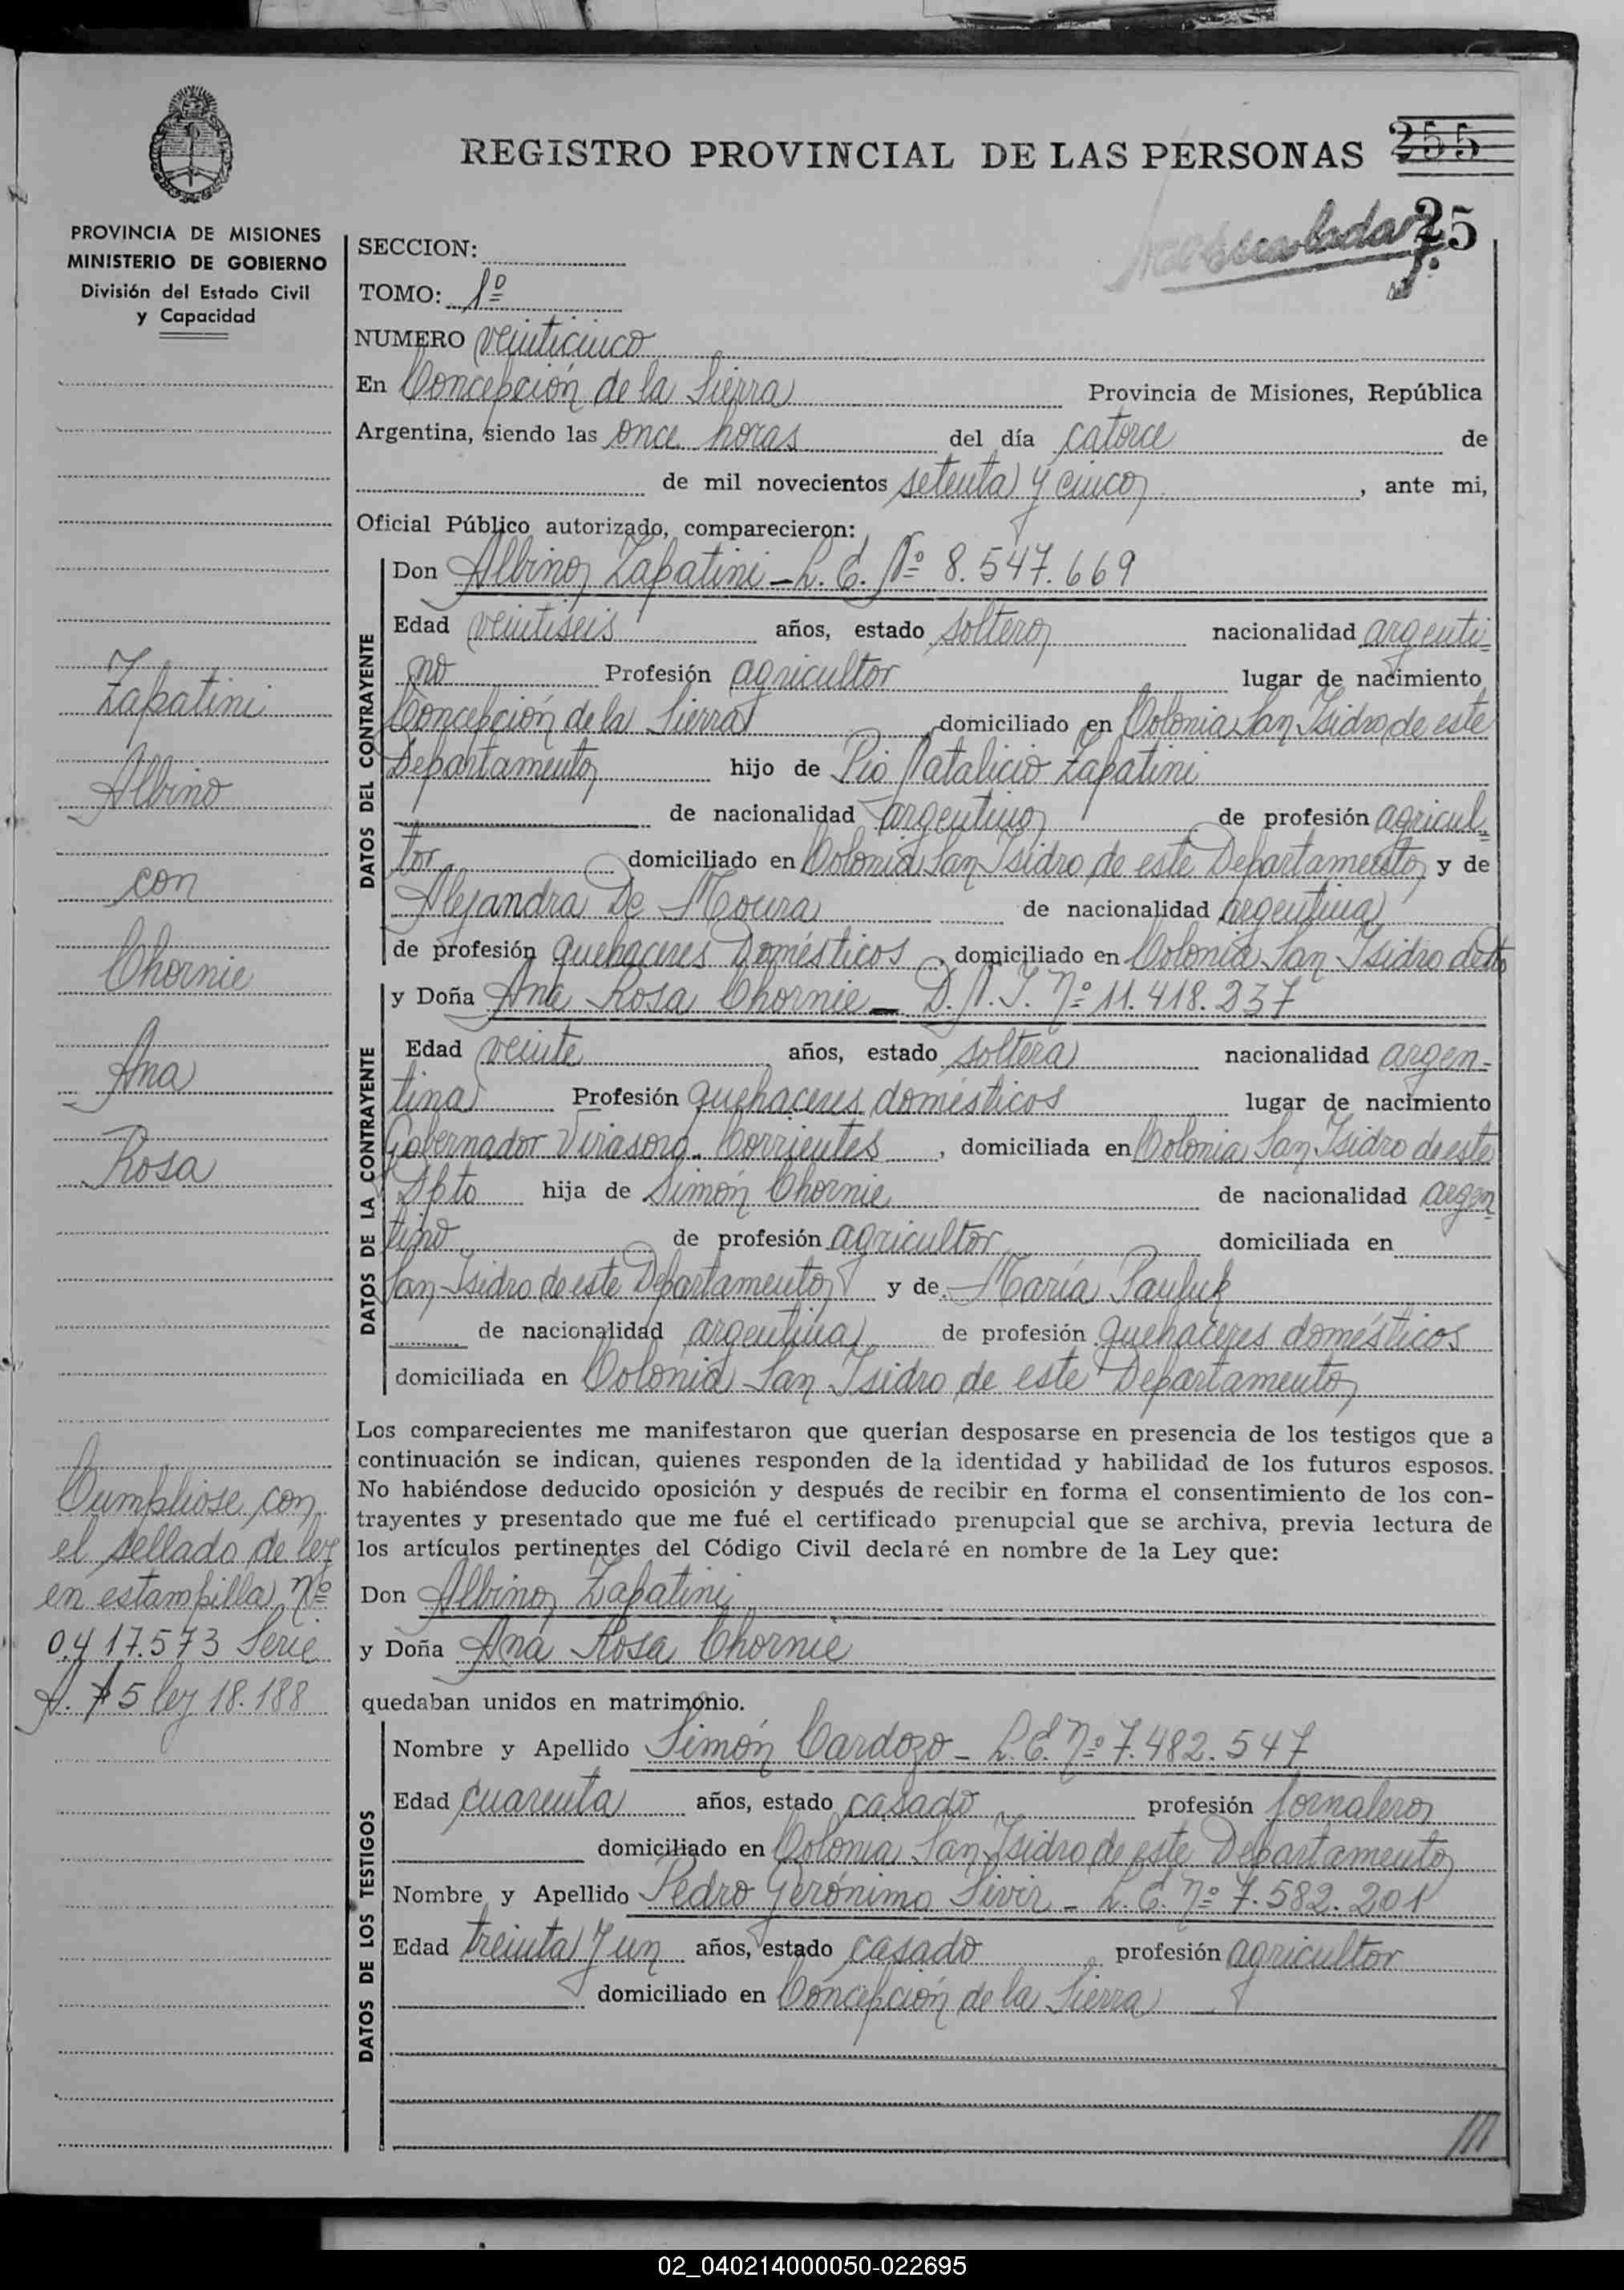 REGISTRO PROVINCIAL DE LAS PERSONAS 255
25
PROVINCIA DE MISIONES
MINISTERIO DE GOBIERNO
División del Estado Civil
y Capacidad
Zapatini
Albino
con
Chornie
Ana
Rosa
Cumpliose con
el sellado de ley
en estampilla Nº
0.417.573 Serie
A. $5 ley 18.188
SECCION:
TOMO: 1º
NUMERO veinticinco
En Concepción de la Sierra Provincia de Misiones, República
Argentina, siendo las once horas del día catorce de
de mil novecientos setenta y cinco, ante mi,
Oficial Público autorizado, comparecieron:
DATOS DEL CONTRAYENTE
Don Albino Zapatini - L. E. Nº 8.547.669
Edad veintiseis años, estado soltero nacionalidad argenti
no Profesión agricultor lugar de nacimiento
Concepción de la Sierra, domiciliado en Colonia San Isidro de este
Departamento hijo de Pio Natalicio Zapatini
de nacionalidad argentino de profesión agricul
tor domiciliado en Colonia San Isidro de este Departamento y de
Alejandra De Moura de nacionalidad argentina
de profesión quehaceres Domésticos, domiciliado en Colonia San Isidro
DATOS DE LA CONTRAYENTE
y Doña Ana Rosa Chornie - D.N.I. Nº 11.418.237
Edad veinte años, estado soltera nacionalidad argen-
tina Profesión quehaceres domésticos lugar de nacimiento
Gobernador Virasoro. Corrientes, domiciliada en Colonia San Isidro de este
Dpto hija de Simón Chornie de nacionalidad argen
tino de profesión agricultor domiciliada en
San Isidro de este Departamento y de María Pauluk
de nacionalidad argentina de profesión quehaceres domésticos
domiciliada en Colonia San Isidro de este Departamento
Los comparecientes me manifestaron que querían desposarse en presencia de los testigos que a
continuación se indican, quienes responden de la identidad y habilidad de los futuros esposos.
No habiéndose deducido oposición y después de recibir en forma el consentimiento de los con-
trayentes y presentado que me fué el certificado prenupcial que se archiva, previa lectura de
los artículos pertinentes del Código Civil declaré en nombre de la Ley que:
Don Albino Zapatini
y Doña Ana Rosa Chornie
quedaban unidos en matrimonio.
DATOS DE LOS TESTIGOS
Nombre y Apellido Simón Cardozo - L.E. Nº 7.482.547
Edad cuarenta años, estado casado profesión jornalero
domiciliado en Colonia San Isidro de este Departamento
Nombre y Apellido Pedro Gerónimo Sivir - L. E. Nº 7.582.201
Edad treinta y un años, estado casado profesión agricultor
domiciliado en Concepción de la Sierra
02_040214000050-022695